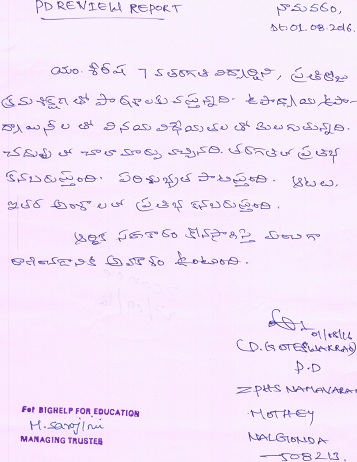 PD REVIEW REPORT
నామవరం,
Dt: 01.08.2016.
యం. శిరీష 7 వ తరగతి విద్యార్థిని, ప్రతిరోజు
క్రమశిక్షణ తో పాఠశాలకు వస్తున్నది.
తో వినయ విధేయతల తో మెలుగుతున్నది.
చదువు లో చాలా మార్పు వచ్చినది. తరగతిలో ప్రతిభ
కనబరుస్తుంది. పరిశుభ్రత పాటిస్తుంది. ఆటలు,
ఇతర అంశాల లో ప్రతిభ కనబరుస్తుంది.
ఆర్థిక సహకారం కొనసాగిస్తే మంచిగా
అవకాశం ఉంటుంది.
01/08/16
(D. KOTESWARRAO)
P.D
ZPHS NAMAVARAM
MOTHEY
NALGONDA
508213.
For BIGHELP FOR EDUCATION
M. Sarojini
MANAGING TRUSTEE